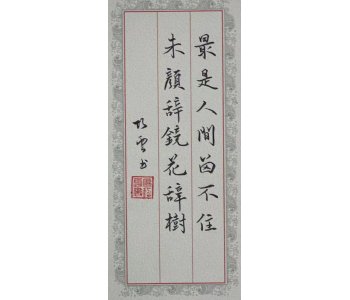 最是人間留不住
朱顏辞鏡花辞樹